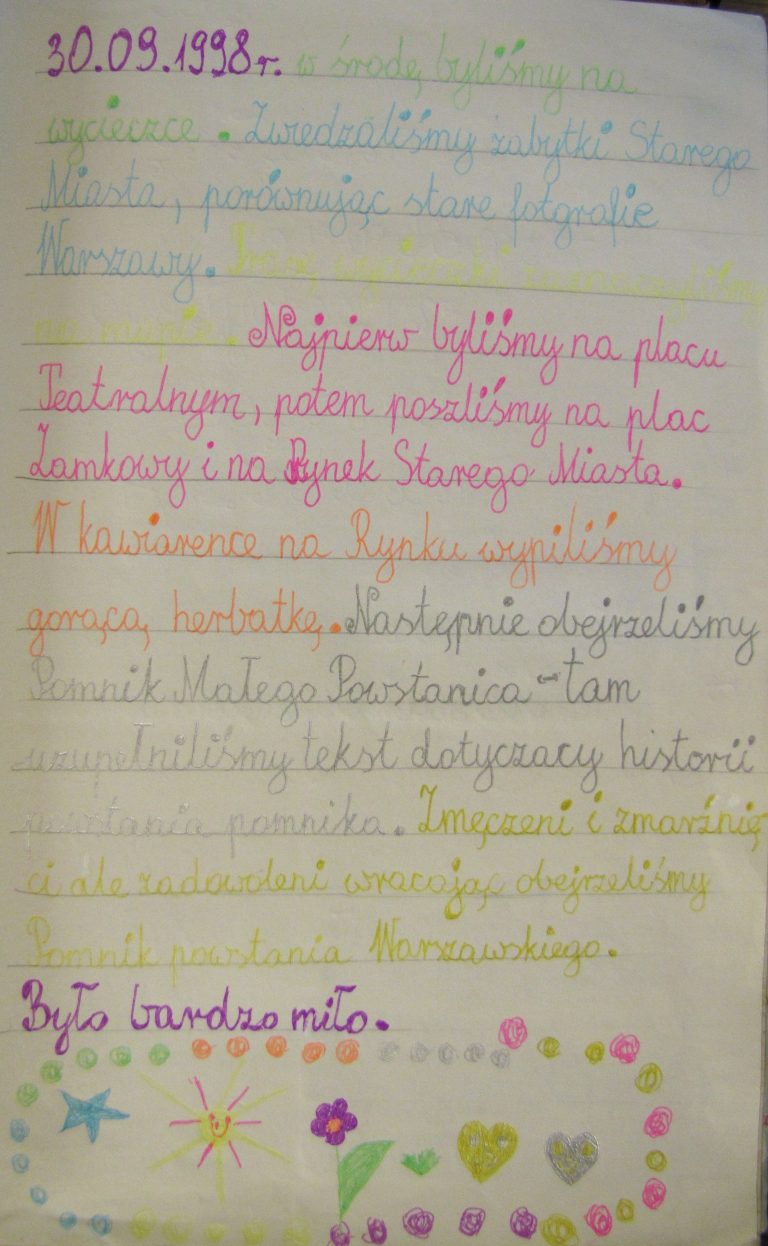 30.09.1998r. w środę byliśmy na
wycieczce. Zwiedzaliśmy zabytki Starego
Miasta, porównując stare fotgrafie
Warszawy. Trasę wycieczki zaznaczyliśmy
na mapie. Najpierw byliśmy na placu
Teatralnym, potem poszliśmy na plac
Zamkowy i na Rynek Starego Miasta.
W kawiarence na Rynku wypiliśmy
gorącą herbatkę. Następnie obejrzeliśmy
Pomnik Małego Powstanica - tam
uzupełniliśmy tekst dotyczacy historii
powstania pomnika. Zmęczeni i zmarźnię
ci ale zadowoleni wracając obejrzeliśmy
Pomnik powstania Warszawskiego.
Było bardzo miło.